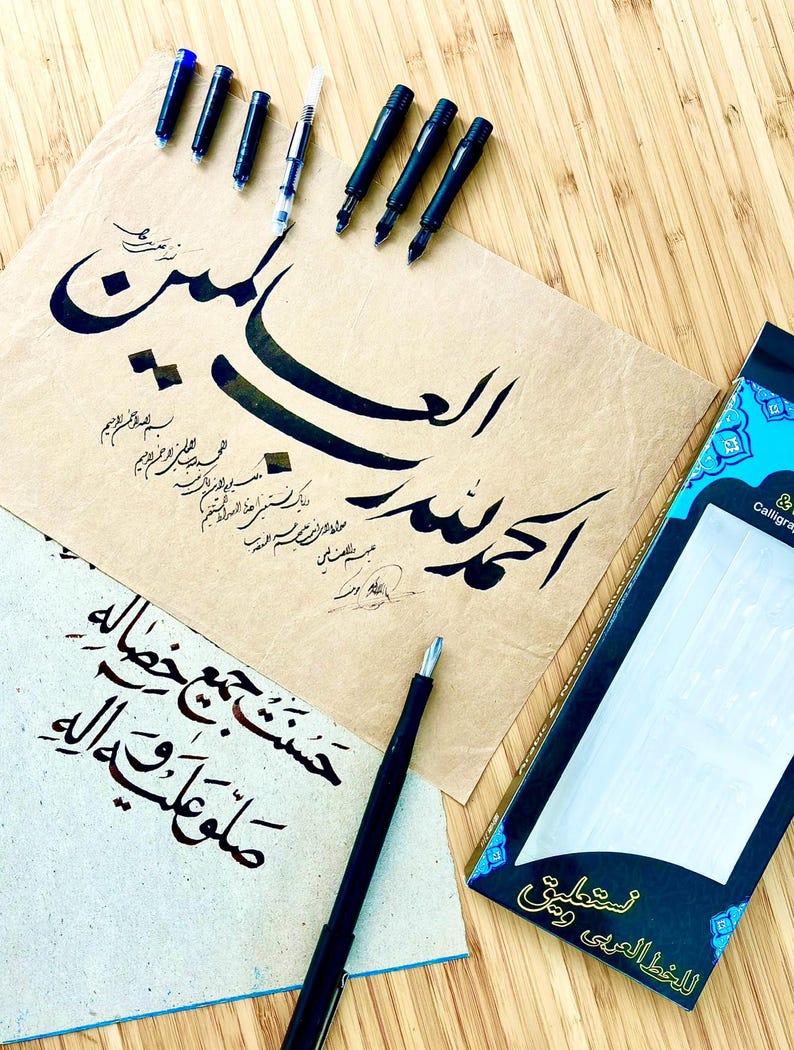 الحمد لله رب العالمين
بسم الله الرحمن الرحيم
الحمد لله رب العالمین الرحمن الرحیم
مالك یوم الدین ایاك نعبد
وایاك نستعین اهدنا الصراط المستقیم
صراط الذین انعمت علیهم غیر المغضوب
علیهم ولا الضالین
حَسُنَتْ جَمِيعُ خِصَالِهِ
صَلُّو عَلَيْهِ وَآلِهِ
&
Calligra
نستعليق
للخط العربي و